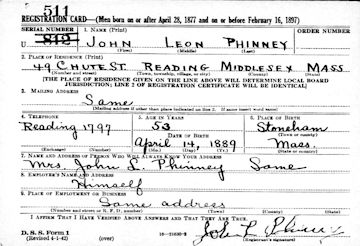 511
REGISTRATION CARD—(Men born on or after April 28, 1877 and on or before February 16, 1897)
SERIAL NUMBER 1. NAME (Print) ORDER NUMBER
U 812 JOHN LEON PHINNEY
(First) (Middle) (Last)
2. PLACE OF RESIDENCE (Print)
49 CHUTE ST. READING MIDDLESEX MASS
(Number and street) (Town, township, village, or city) (County) (State)
[THE PLACE OF RESIDENCE GIVEN ON THE LINE ABOVE WILL DETERMINE LOCAL BOARD
JURISDICTION; LINE 2 OF REGISTRATION CERTIFICATE WILL BE IDENTICAL]
3. MAILING ADDRESS
Same
(Mailing address if other than place indicated on line 2. If same insert word same)
4. TELEPHONE 5. AGE IN YEARS 6. PLACE OF BIRTH
Reading 1797 53 Stoneham
DATE OF BIRTH (Town or county)
April 14, 1889 Mass.
(Exchange) (Number) (Mo.) (Day) (Yr.) (State or country)
7. NAME AND ADDRESS OF PERSON WHO WILL ALWAYS KNOW YOUR ADDRESS
Mrs John L. Phinney Same
8. EMPLOYER'S NAME AND ADDRESS
Himself
9. PLACE OF EMPLOYMENT OR BUSINESS
Same address
(Number and street or R. F. D. number) (Town) (County) (State)
I AFFIRM THAT I HAVE VERIFIED ABOVE ANSWERS AND THAT THEY ARE TRUE.
D. S. S. Form 1
(Revised 4-1-42) (over) John L Phinney
(Registrant's signature)